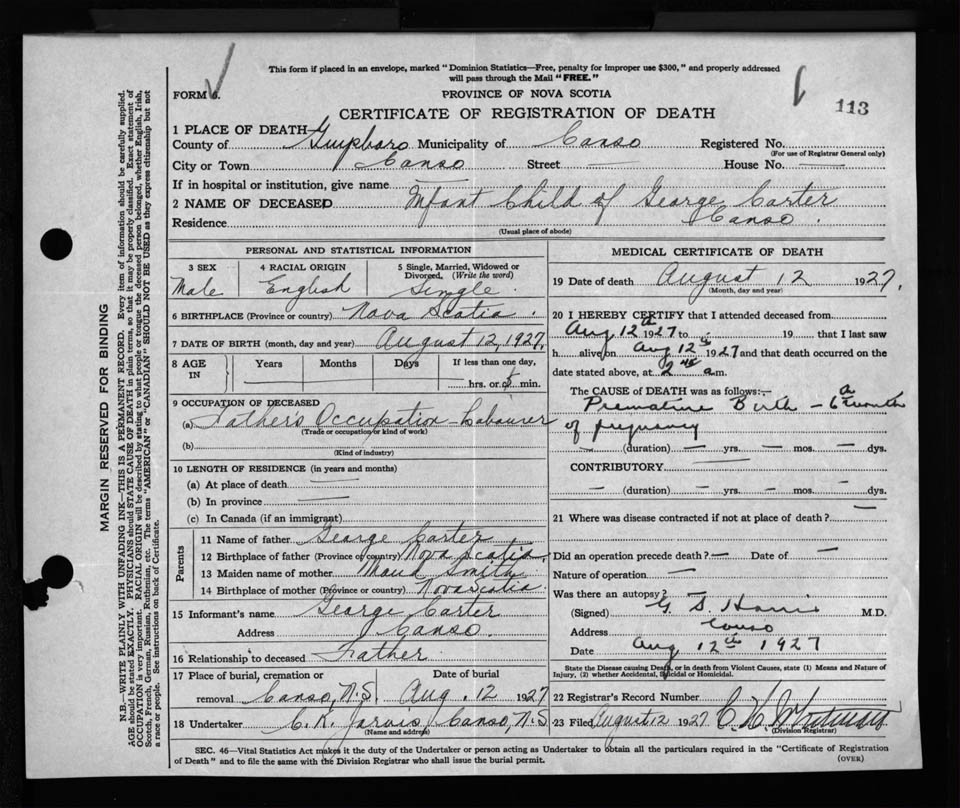 This form if placed in an envelope, marked "Dominion Statistics—Free, penalty for improper use $300," and properly addressed
will pass through the Mail "FREE."
FORM 6. PROVINCE OF NOVA SCOTIA 113
CERTIFICATE OF REGISTRATION OF DEATH
1 PLACE OF DEATH—
County of Guysboro Municipality of Canso Registered No.
(For use of Registrar General only)
City or Town Canso Street — House No. —
If in hospital or institution, give name —
2 NAME OF DECEASED Infant Child of George Carter
Residence Canso.
(Usual place of abode)
PERSONAL AND STATISTICAL INFORMATION
3 SEX 4 RACIAL ORIGIN 5 Single, Married, Widowed or
Divorced, (Write the word)
Male English Single.
6 BIRTHPLACE (Province or country) Nova Scotia.
7 DATE OF BIRTH (month, day and year) August 12, 1927.
8 AGE IN Years Months Days If less than one day,
— hrs. or 5 min.
9 OCCUPATION OF DECEASED
(a) Father's Occupation - Labourer
(Trade or occupation or kind of work)
(b)
(Kind of industry)
10 LENGTH OF RESIDENCE (in years and months)
(a) At place of death —
(b) In province —
(c) In Canada (if an immigrant)
Parents
11 Name of father George Carter
12 Birthplace of father (Province or country) Nova Scotia.
13 Maiden name of mother Maud Smith
14 Birthplace of mother (Province or country) Nova Scotia.
15 Informant's name George Carter
Address Canso.
16 Relationship to deceased Father.
17 Place of burial, cremation or Date of burial
removal Canso, N.S. Aug. 12 1927
18 Undertaker C.R. Jarvis Canso, N.S.
(Name and address)
MEDICAL CERTIFICATE OF DEATH
19 Date of death August 12 1927.
(Month, day and year)
20 I HEREBY CERTIFY that I attended deceased from
Aug 12th 1927 to - 19 , that I last saw
h alive on Aug 12th 1927 and that death occurred on the
date stated above, at 2 45 a.m.
The CAUSE of DEATH was as follows:—
Premature Birth — 6 months
of pregnancy
(duration) — yrs. — mos. — dys.
CONTRIBUTORY —
— (duration) — yrs. — mos. — dys.
21 Where was disease contracted if not at place of death? —
Did an operation precede death? — Date of —
Nature of operation —
Was there an autopsy? —
(Signed) G. S. Harris M.D.
Address Canso
Date Aug 12th 1927
State the Disease causing Death, or in death from Violent Causes, state (1) Means and Nature of
Injury, (2) whether Accidental, Suicidal or Homicidal.
22 Registrar's Record Number
23 Filed August 12 1927
(Division Registrar)
SEC. 46—Vital Statistics Act makes it the duty of the Undertaker or person acting as Undertaker to obtain all the particulars required in the "Certificate of Registration
of Death" and to file the same with the Division Registrar who shall issue the burial permit. (OVER)
MARGIN RESERVED FOR BINDING
N.B.—WRITE PLAINLY WITH UNFADING INK—THIS IS A PERMANENT RECORD. Every item of information should be carefully supplied.
AGE should be stated EXACTLY. PHYSICIANS should STATE CAUSE OF DEATH in plain terms, so that it may be properly classified. Exact statement of
OCCUPATION is very important. RACIAL ORIGIN will be described by stating to what people or tongue the deceased person belonged, whether English, Irish,
Scotch, French, German, Russian, Ruthenian, etc. The terms "AMERICAN" or "CANADIAN" SHOULD NOT BE USED as they express citizenship but not
a race or people. See instructions on back of Certificate.